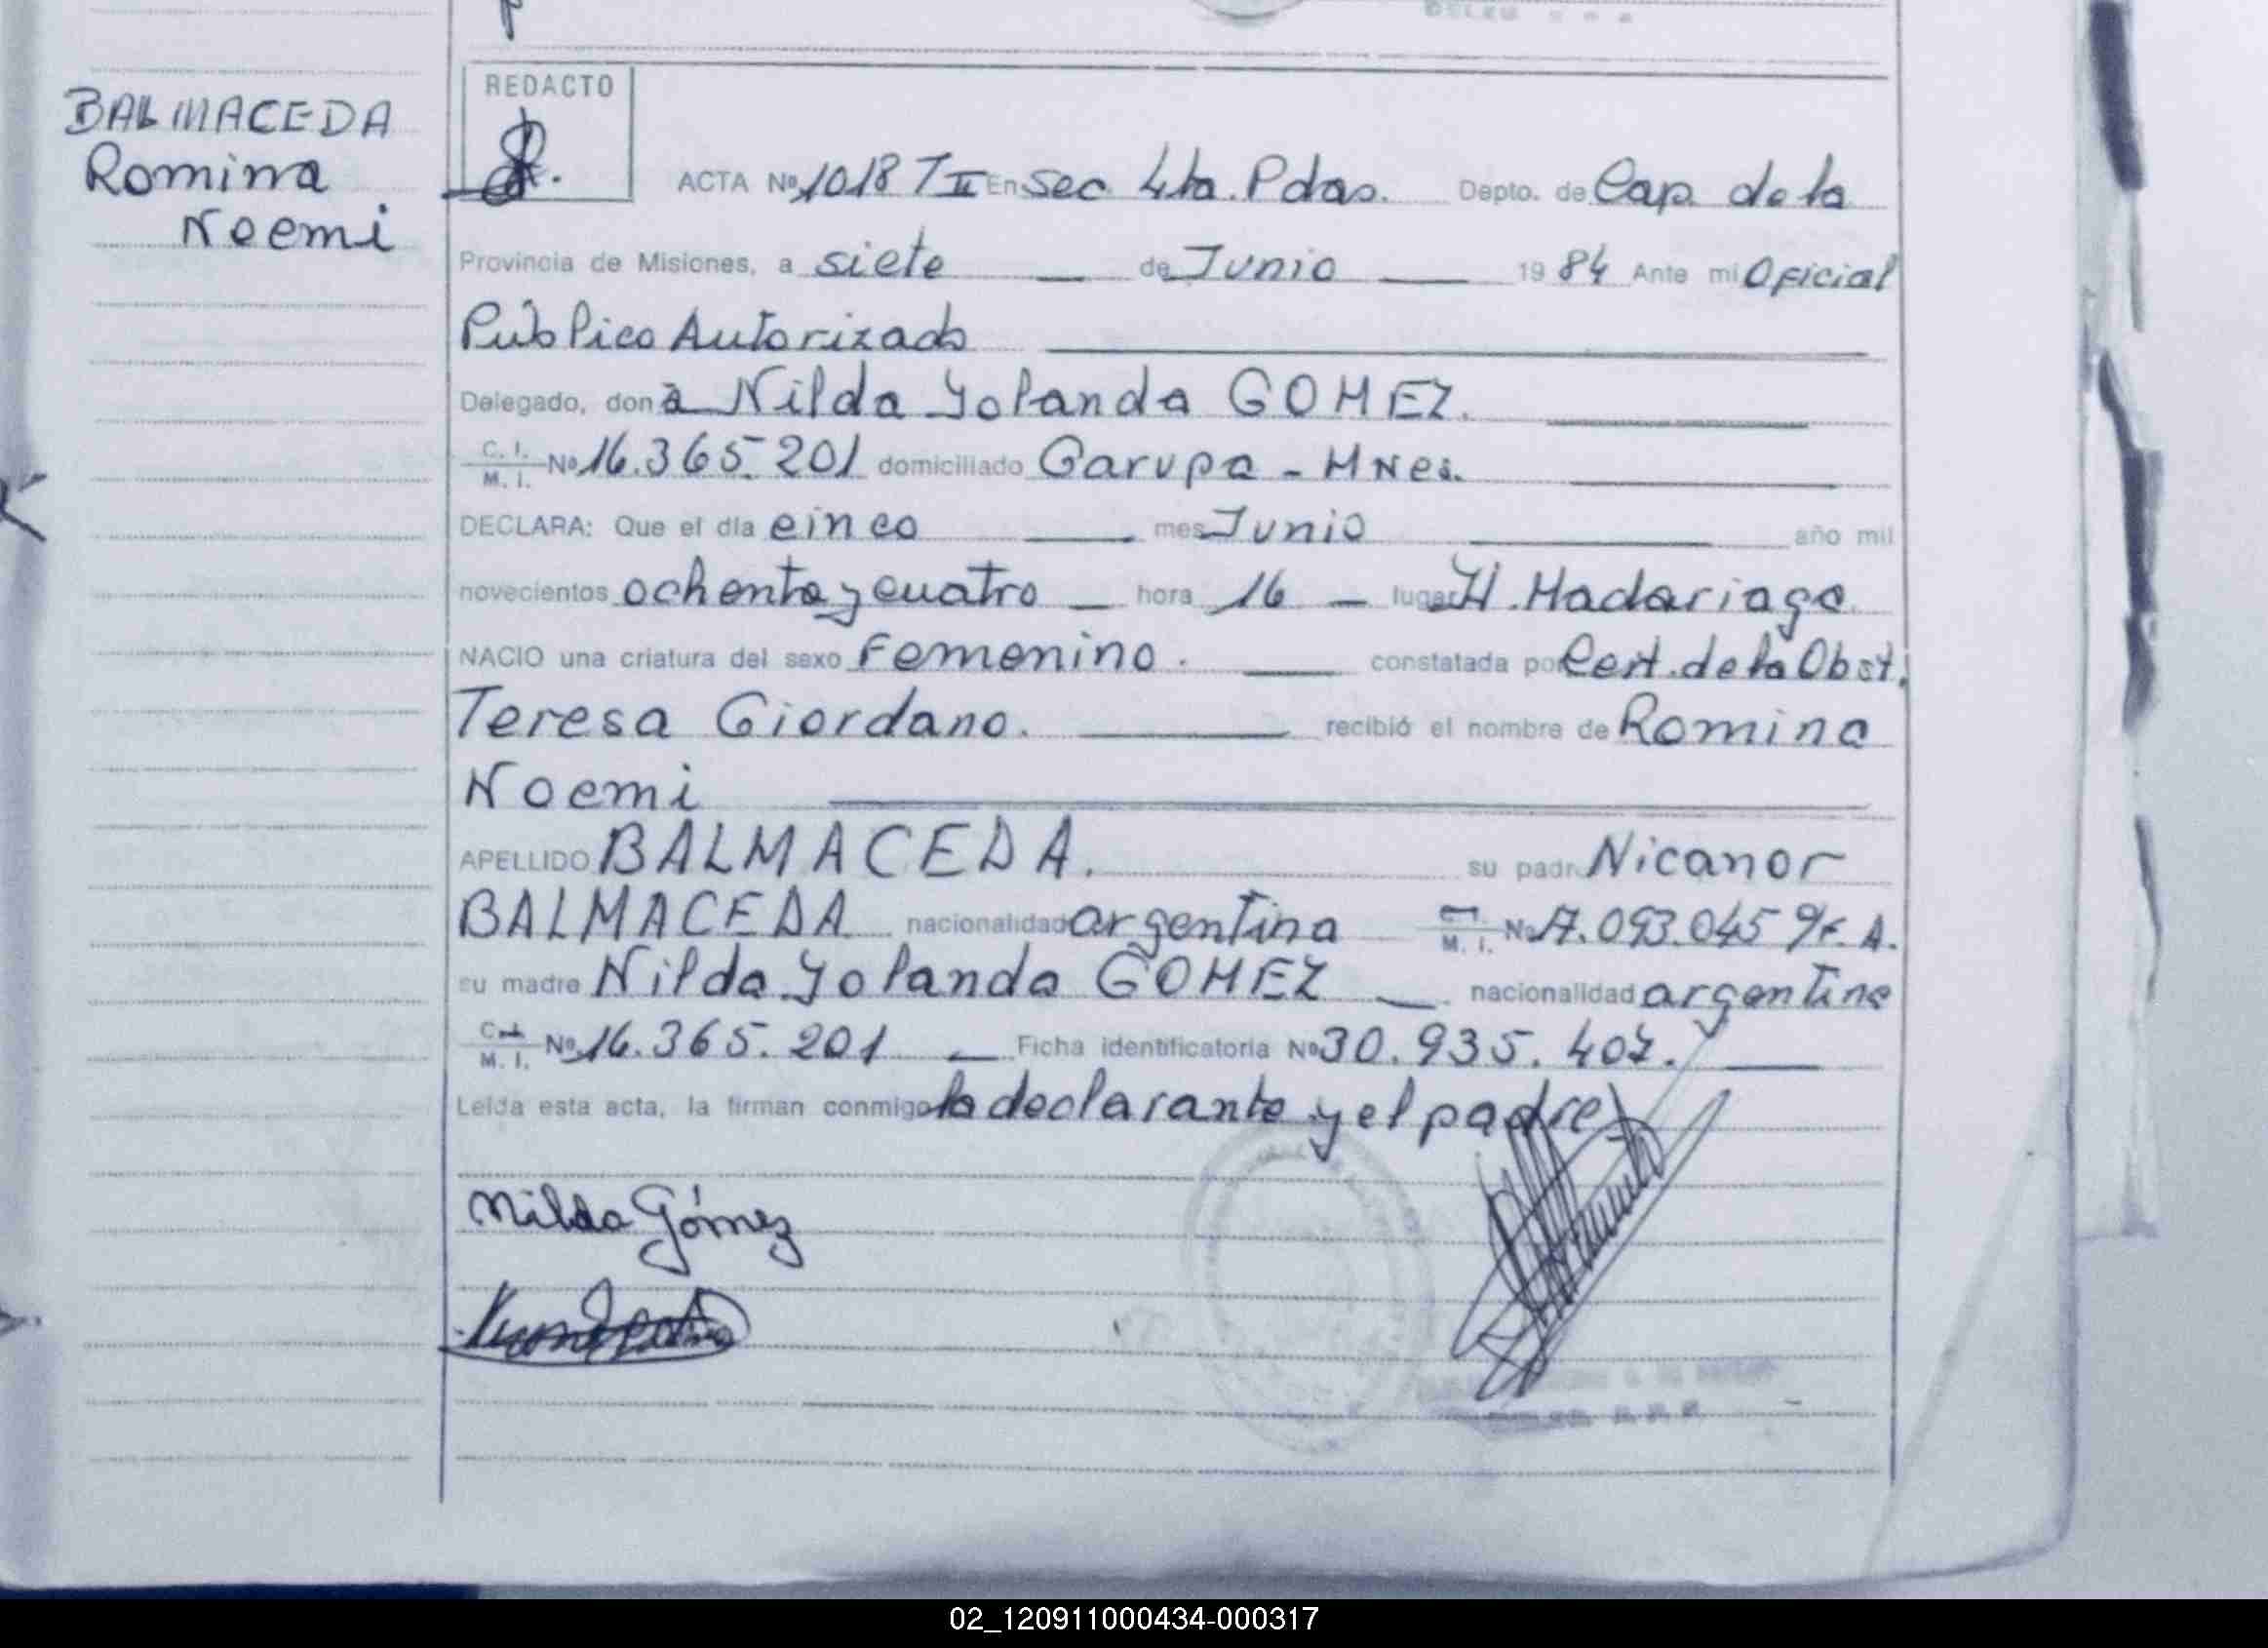 BALMACEDA
Romina
Noemi
REDACTO
ACTA Nº 1018 T II En Sec 4ta. Pdas. Depto. de Cap. de la
Provincia de Misiones, a siete de Junio 19 84 Ante mi Oficial
Publico Autorizado
Delegado, don a Nilda Yolanda GOMEZ.
C. I. / M. I. Nº 16.365.201 domiciliado Garupa - Mnes.
DECLARA: Que el día cinco mes Junio año mil
novecientos ochenta y cuatro hora 16 lugar H. Madariaga
NACIO una criatura del sexo Femenino. constatada por Cert. de la Obst.
Teresa Giordano. recibió el nombre de Romina
Noemi
APELLIDO BALMACEDA. su padre Nicanor
BALMACEDA nacionalidad argentina M. I. Nº 17.093.045 F. A.
su madre Nilda Yolanda GOMEZ nacionalidad argentina
C. I. / M. I. Nº 16.365.201 Ficha identificatoria Nº 30.935.407.
Leída esta acta, la firman conmigo la declarante y el padre
Nilda Gómez
02_120911000434-000317